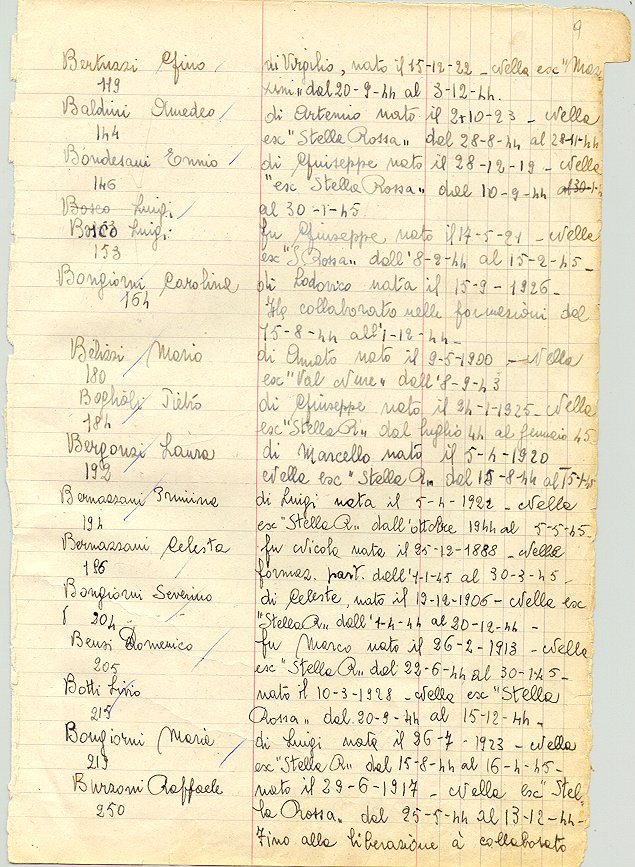 9
Bertuzzi Gino di Virgilio, nato il 15-12-22 - nella esc "Maz
119 zini" dal 20-9-44 al 3-12-44.
Baldini Amedeo di Artemio nato il 2-10-23 - nella
144 esc "Stella Rossa" dal 28-8-44 al 28-11-44
Bondesani Ennio di Giuseppe nato il 28-12-19 - nella
146 "esc Stella Rossa" dal 10-9-44 al 30-1-
Bosco Luigi al 30-1-45.
Bosco Luigi fu Giuseppe nato il 17-5-21 - nella
153 esc "S Rossa" dall'8-2-44 al 15-2-45-
Bongiorni Carolina di Lodovico nata il 15-9-1926-
164 Ha collaborato nelle formazioni dal
15-8-44 all'1-12-44-
Belizzi Mario di Amato nato il 9-5-1900 - nella
180 esc "Val Nure" dall'8-9-43
Boglioli Pietro di Giuseppe nato il 24-1-1925- nella
184 esc "Stella R" dal luglio 44 al gennaio 45
Bergonzi Laura di Marcello nato il 5-4-1920
192 nella esc "Stella R" dal 15-8-44 al 15-1-45
Bernazzani Erminia di Luigi nata il 5-4-1922 - nella
194 esc "Stella R" dall'ottobre 1944 al 5-5-45-
Bernazzani Celesta fu Nicola nata il 25-12-1888 - nella
196 formaz. part. dall'1-1-45 al 30-3-45-
Bongiorni Severino di Celeste, nato il 19-12-1906- nella esc
204 "Stella R" dall'1-4-44 al 20-12-44 -
Bensi Domenico fu Marco nato il 26-2-1913 - nella
205 esc "Stella R" dal 22-6-44 al 30-1-45-
Botti Livio nato il 10-3-1928 - nella esc "Stella
215 Rossa" dal 20-9-44 al 15-12-44-
Bongiorni Maria di Luigi nata il 26-7-1923 - nella
219 esc "Stella R" dal 15-8-44 al 16-4-45-
Burzoni Raffaele nato il 29-6-1917 - nella esc "Stel-
250 la Rossa" dal 25-5-44 al 13-12-44-
Fino alla liberazione à collaborato